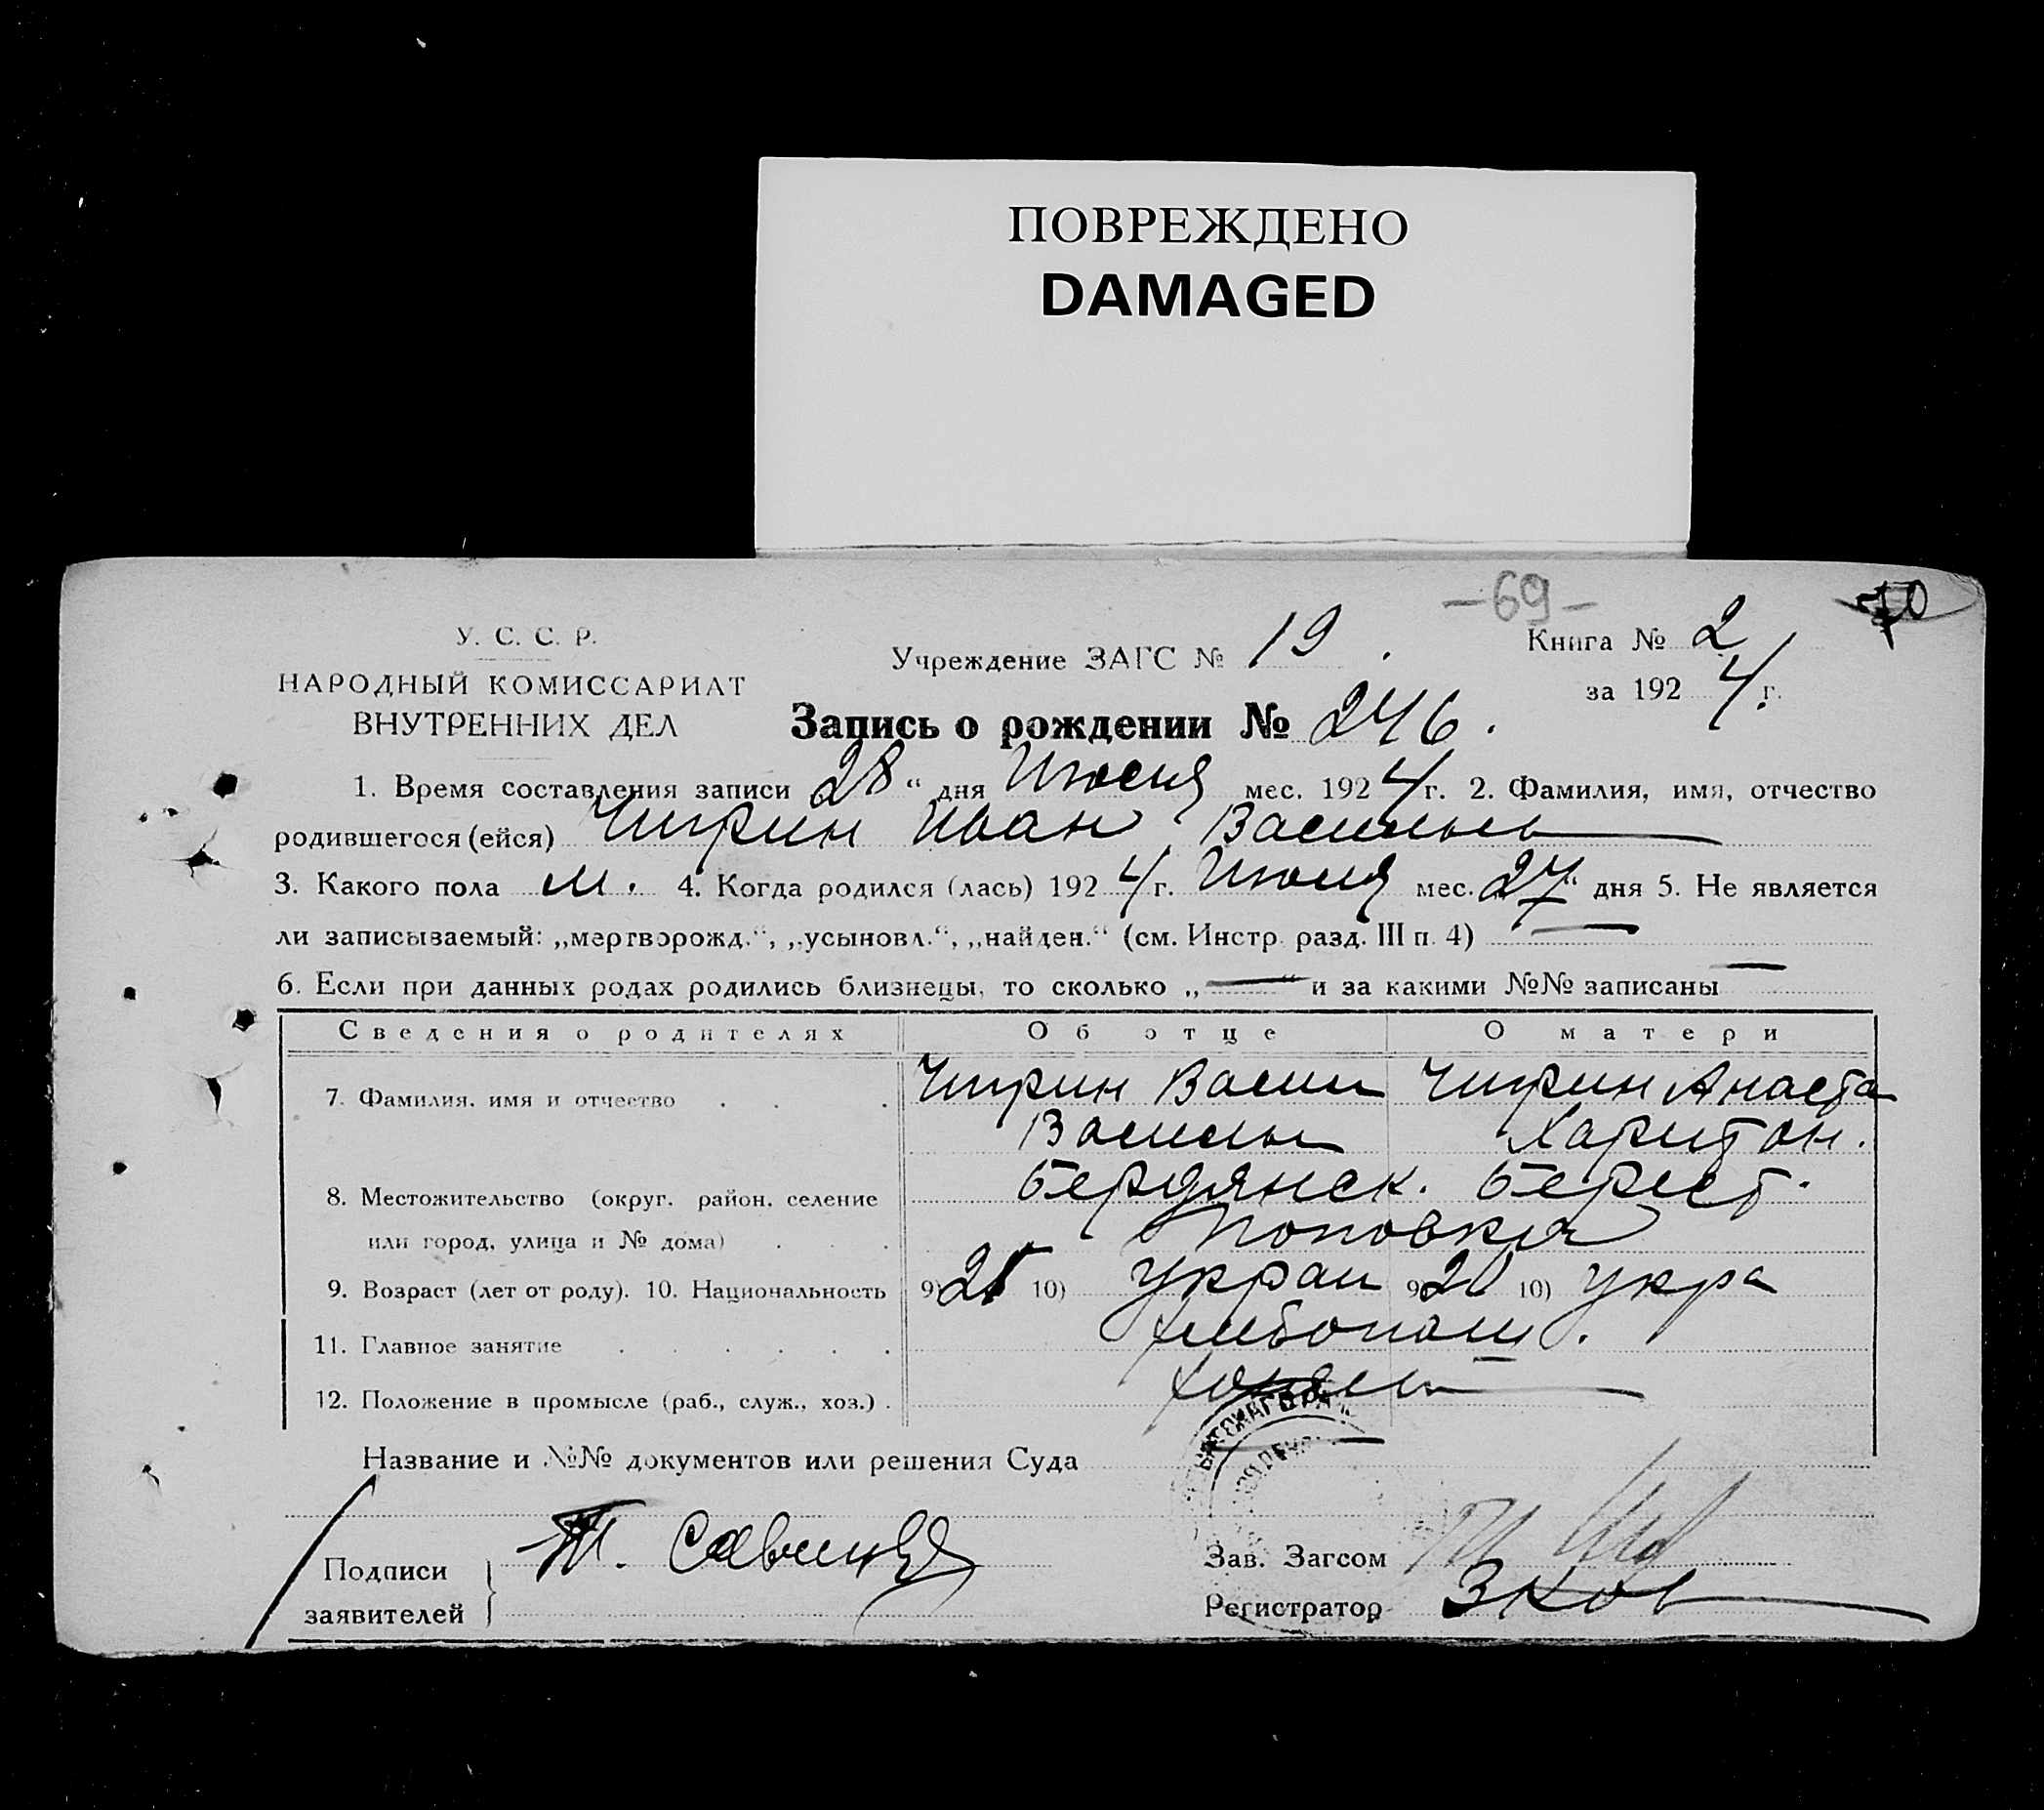 ПОВРЕЖДЕНО
DAMAGED
-69-
70
У. С. С. Р.
НАРОДНЫЙ КОМИССАРИАТ
ВНУТРЕННИХ ДЕЛ
Учреждение ЗАГС № 19.
Книга № 2
за 1924 г.
Запись о рождении № 246.
1. Время составления записи 28 “ дня Июля мес. 1924 г. 2. Фамилия, имя, отчество
родившегося (ейся) Чирин Иван Василье
3. Какого пола м. 4. Когда родился (лась) 1924 г. Июля мес. 27 “ дня 5. Не является
ли записываемый: „мертворожд.“, „усыновл.“, „найден.“ (см. Инстр. разд. III п. 4) —
6. Если при данных родах родились близнецы, то сколько „—“ и за какими №№ записаны —
Сведения о родителях Об отце О матери
7. Фамилия, имя и отчество Чирин Васил Чирин Анаста
Василье Харитон.
8. Местожительство (округ, район, селение Бердянск. Берест.
или город, улица и № дома) Поповка
9. Возраст (лет от роду). 10. Национальность 9) 25 10) Украи 9) 20 10) Укра
11. Главное занятие хлебопаш.
12. Положение в промысле (раб., служ., хоз.)
Название и №№ документов или решения Суда —
Подписи
заявителей
Зав. Загсом
Регистратор